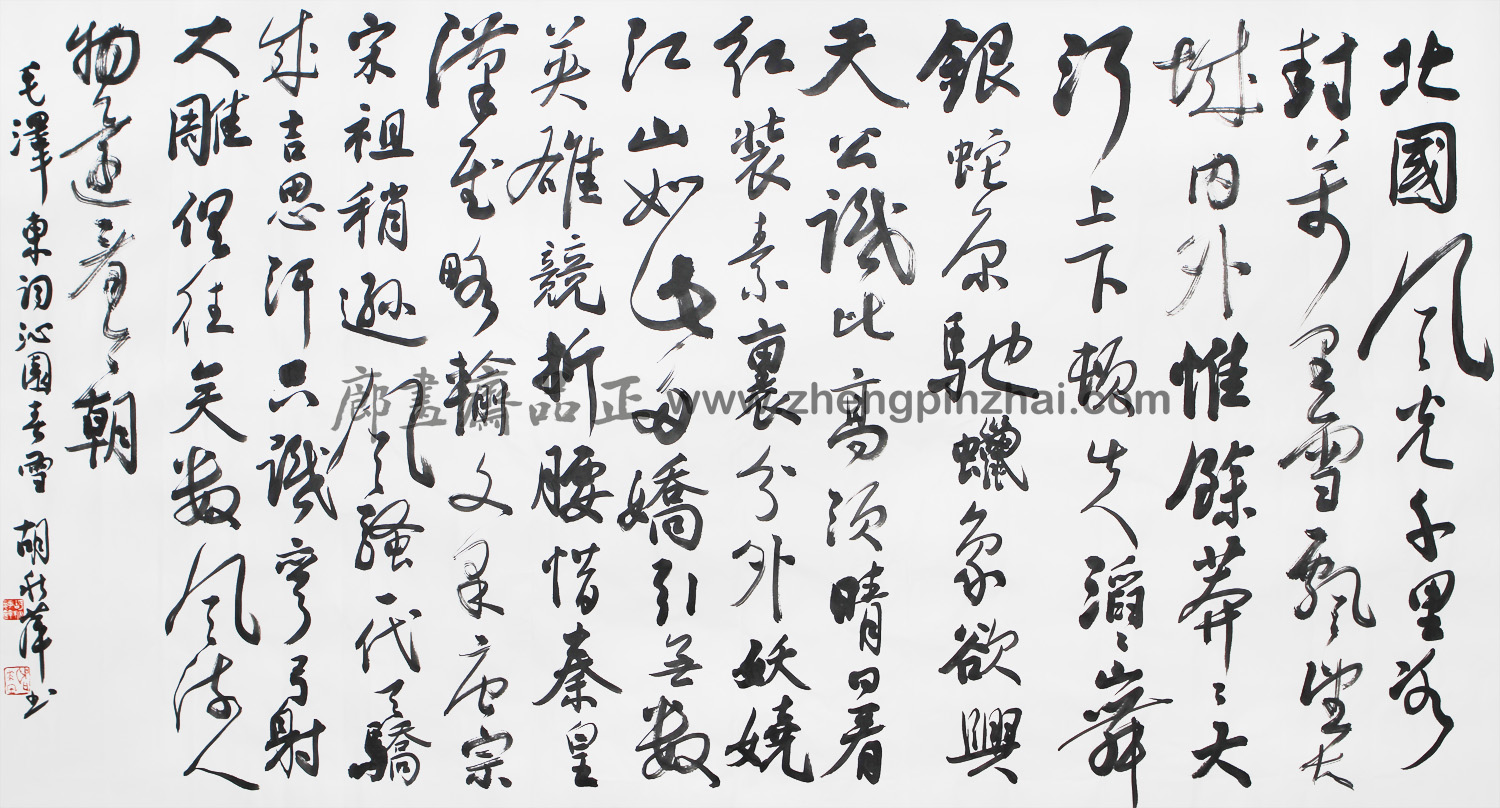 北國風光千里冰
封萬里雪飄望長
城内外惟餘莽〻大
河上下頓失滔〻山舞
銀蛇原馳蠟象欲與
天公試比高須晴日看
紅裝素裹分外妖嬈
江山如此多嬌引無數
英雄競折腰惜秦皇
漢武略輸文采唐宗
宋祖稍遜風騷一代天驕
成吉思汗只識彎弓射
大雕俱往矣數風流人
物還看今朝
毛澤東詞沁園春雪 胡秋萍书
廊畫齋品正 www.zhengpinzhai.com